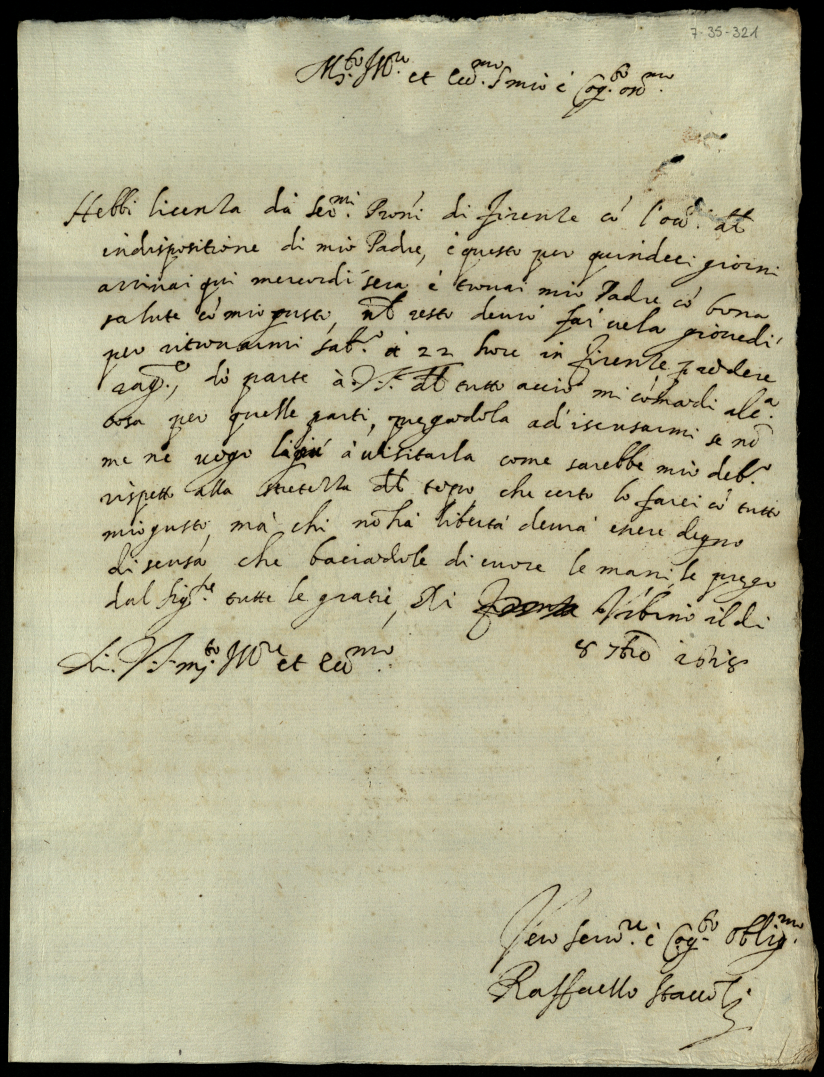 7-35-321
M.to Ill.re et ecc.mo S. mio è Cog.to oss.mo
Hebbi licenza da Ser.mi Pron'i di firenze co' l'occ. dell
indispositione di mio Padre, è questo per quindeci giorni
arrivai qui mercordi sera è trovai mio Padre co' bona
salute co' mio gusto, nel resto devo far vela giovedi
per ritrovarmi sab.o à 22 hore in firenze,
rag.e, dò parte à V.S. del tutto acciò mi comandi alc.a
cosa per quelle parti, pregandola ad iscusarmi se nō
me ne vego à visitarla come sarebbe mio deb.o
rispetto alla stretezza del tēpo, che certo lo farei cō tutto
mio gusto, ma chi nō hà libertà devrà essere degno
di scusa, che baciādole di cuore le mani, le prego
dal Sig.re tutte le gratie, Di Vrbino il di
8 7bro 1618
Di. V.S. m.to Ill.re et ecc.mo
Vero ser.re è Cog.to oblig.mo
Raffaello Staccoli